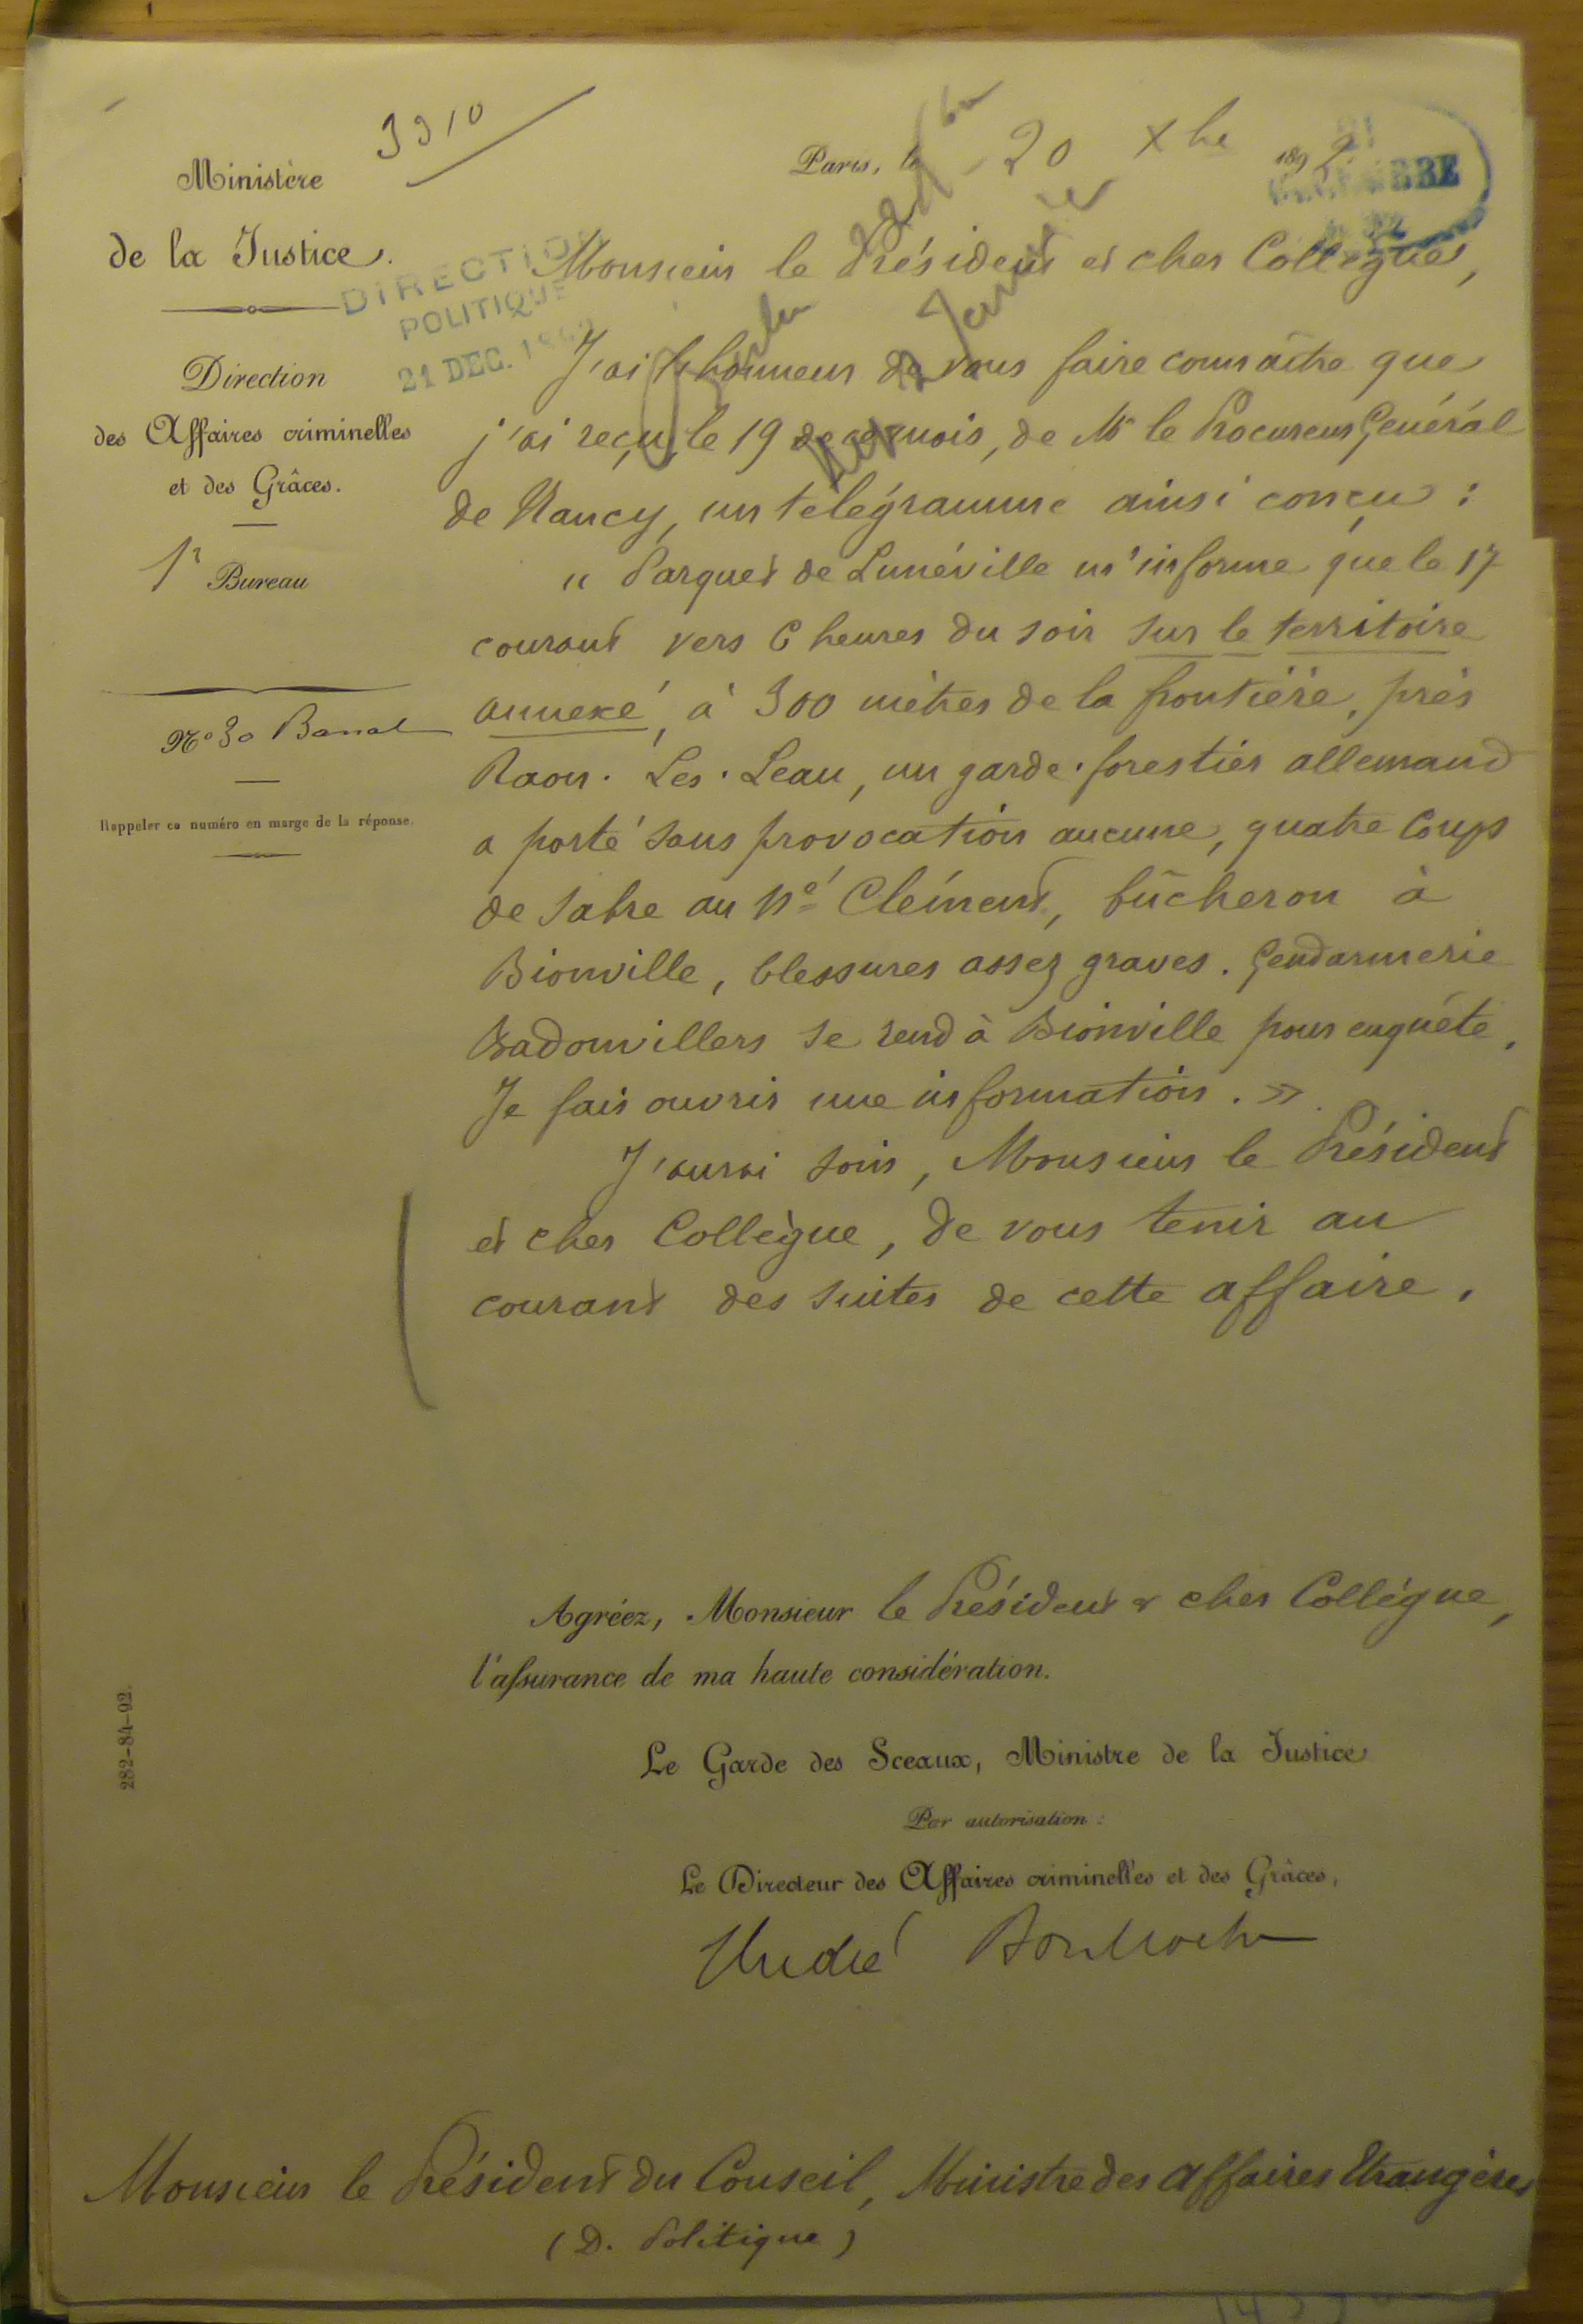 3910
Ministère
de la Justice.
Direction
des Affaires criminelles
et des Grâces.
1r Bureau
No 30 Banal
Rappeler ce numéro en marge de la réponse.
282-84-92.
DIRECTION
POLITIQUE
21 DEC. 1892
Paris, le 20 Xbre 1892
Monsieur le Président et cher Collègue,
J'ai l'honneur de vous faire connaître que
j'ai reçu, le 19 de ce mois, de Mr le Procureur Général
de Nancy, un télégramme ainsi conçu :
" Parquet de Lunéville m'informe que le 17
courant vers 6 heures du soir sur le territoire
annexé, à 300 mètres de la frontière, près
Raon. Les. Leau, un garde. forestier allemand
a porté sans provocation aucune, quatre coups
de sabre au né Clément, bûcheron à
Bionville, blessures assez graves. Gendarmerie
Badonvillers se rend à Bionville pour enquête.
Je fais ouvrir une information. »
J'aurai soin, Monsieur le Président
et cher Collègue, de vous tenir au
courant des suites de cette affaire.
Agréez, Monsieur le Président et cher Collègue,
l'assurance de ma haute considération.
Le Garde des Sceaux, Ministre de la Justice
Par autorisation :
Le Directeur des Affaires criminelles et des Grâces,
André Boulloche
Monsieur le Président du Conseil, Ministre des Affaires Etrangères
(D. Politique)